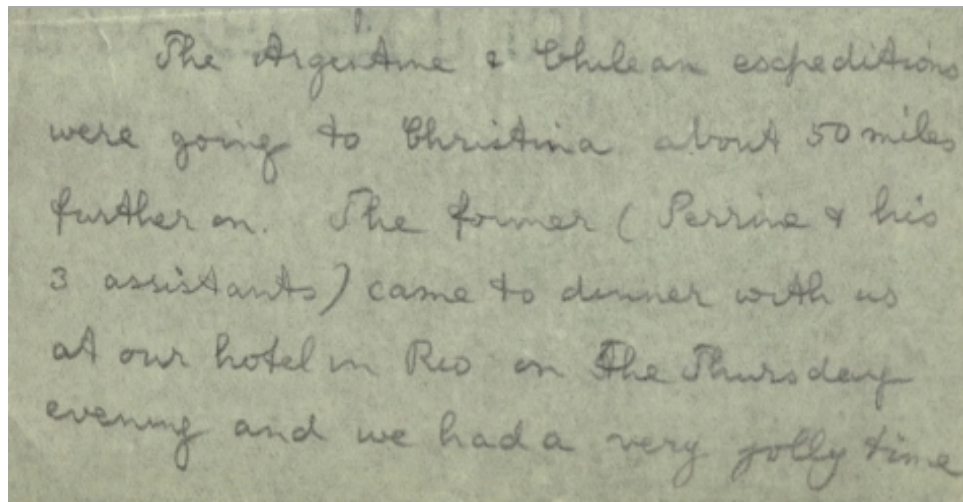 The Argentine & Chilean expeditions
were going to Christina about 50 miles
further on. The former (Perrine & his
3 assistants) came to dinner with us
at our hotel in Rio on the Thursday
evening and we had a very jolly time